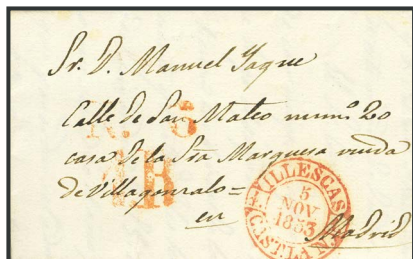 Sr. D. Manuel Yaque
Calle de San Mateo num.º 20
casa de la Sra Marquesa viuda
de Villagonzalo=
en Madrid
ILLESCAS
5
NOV
1853